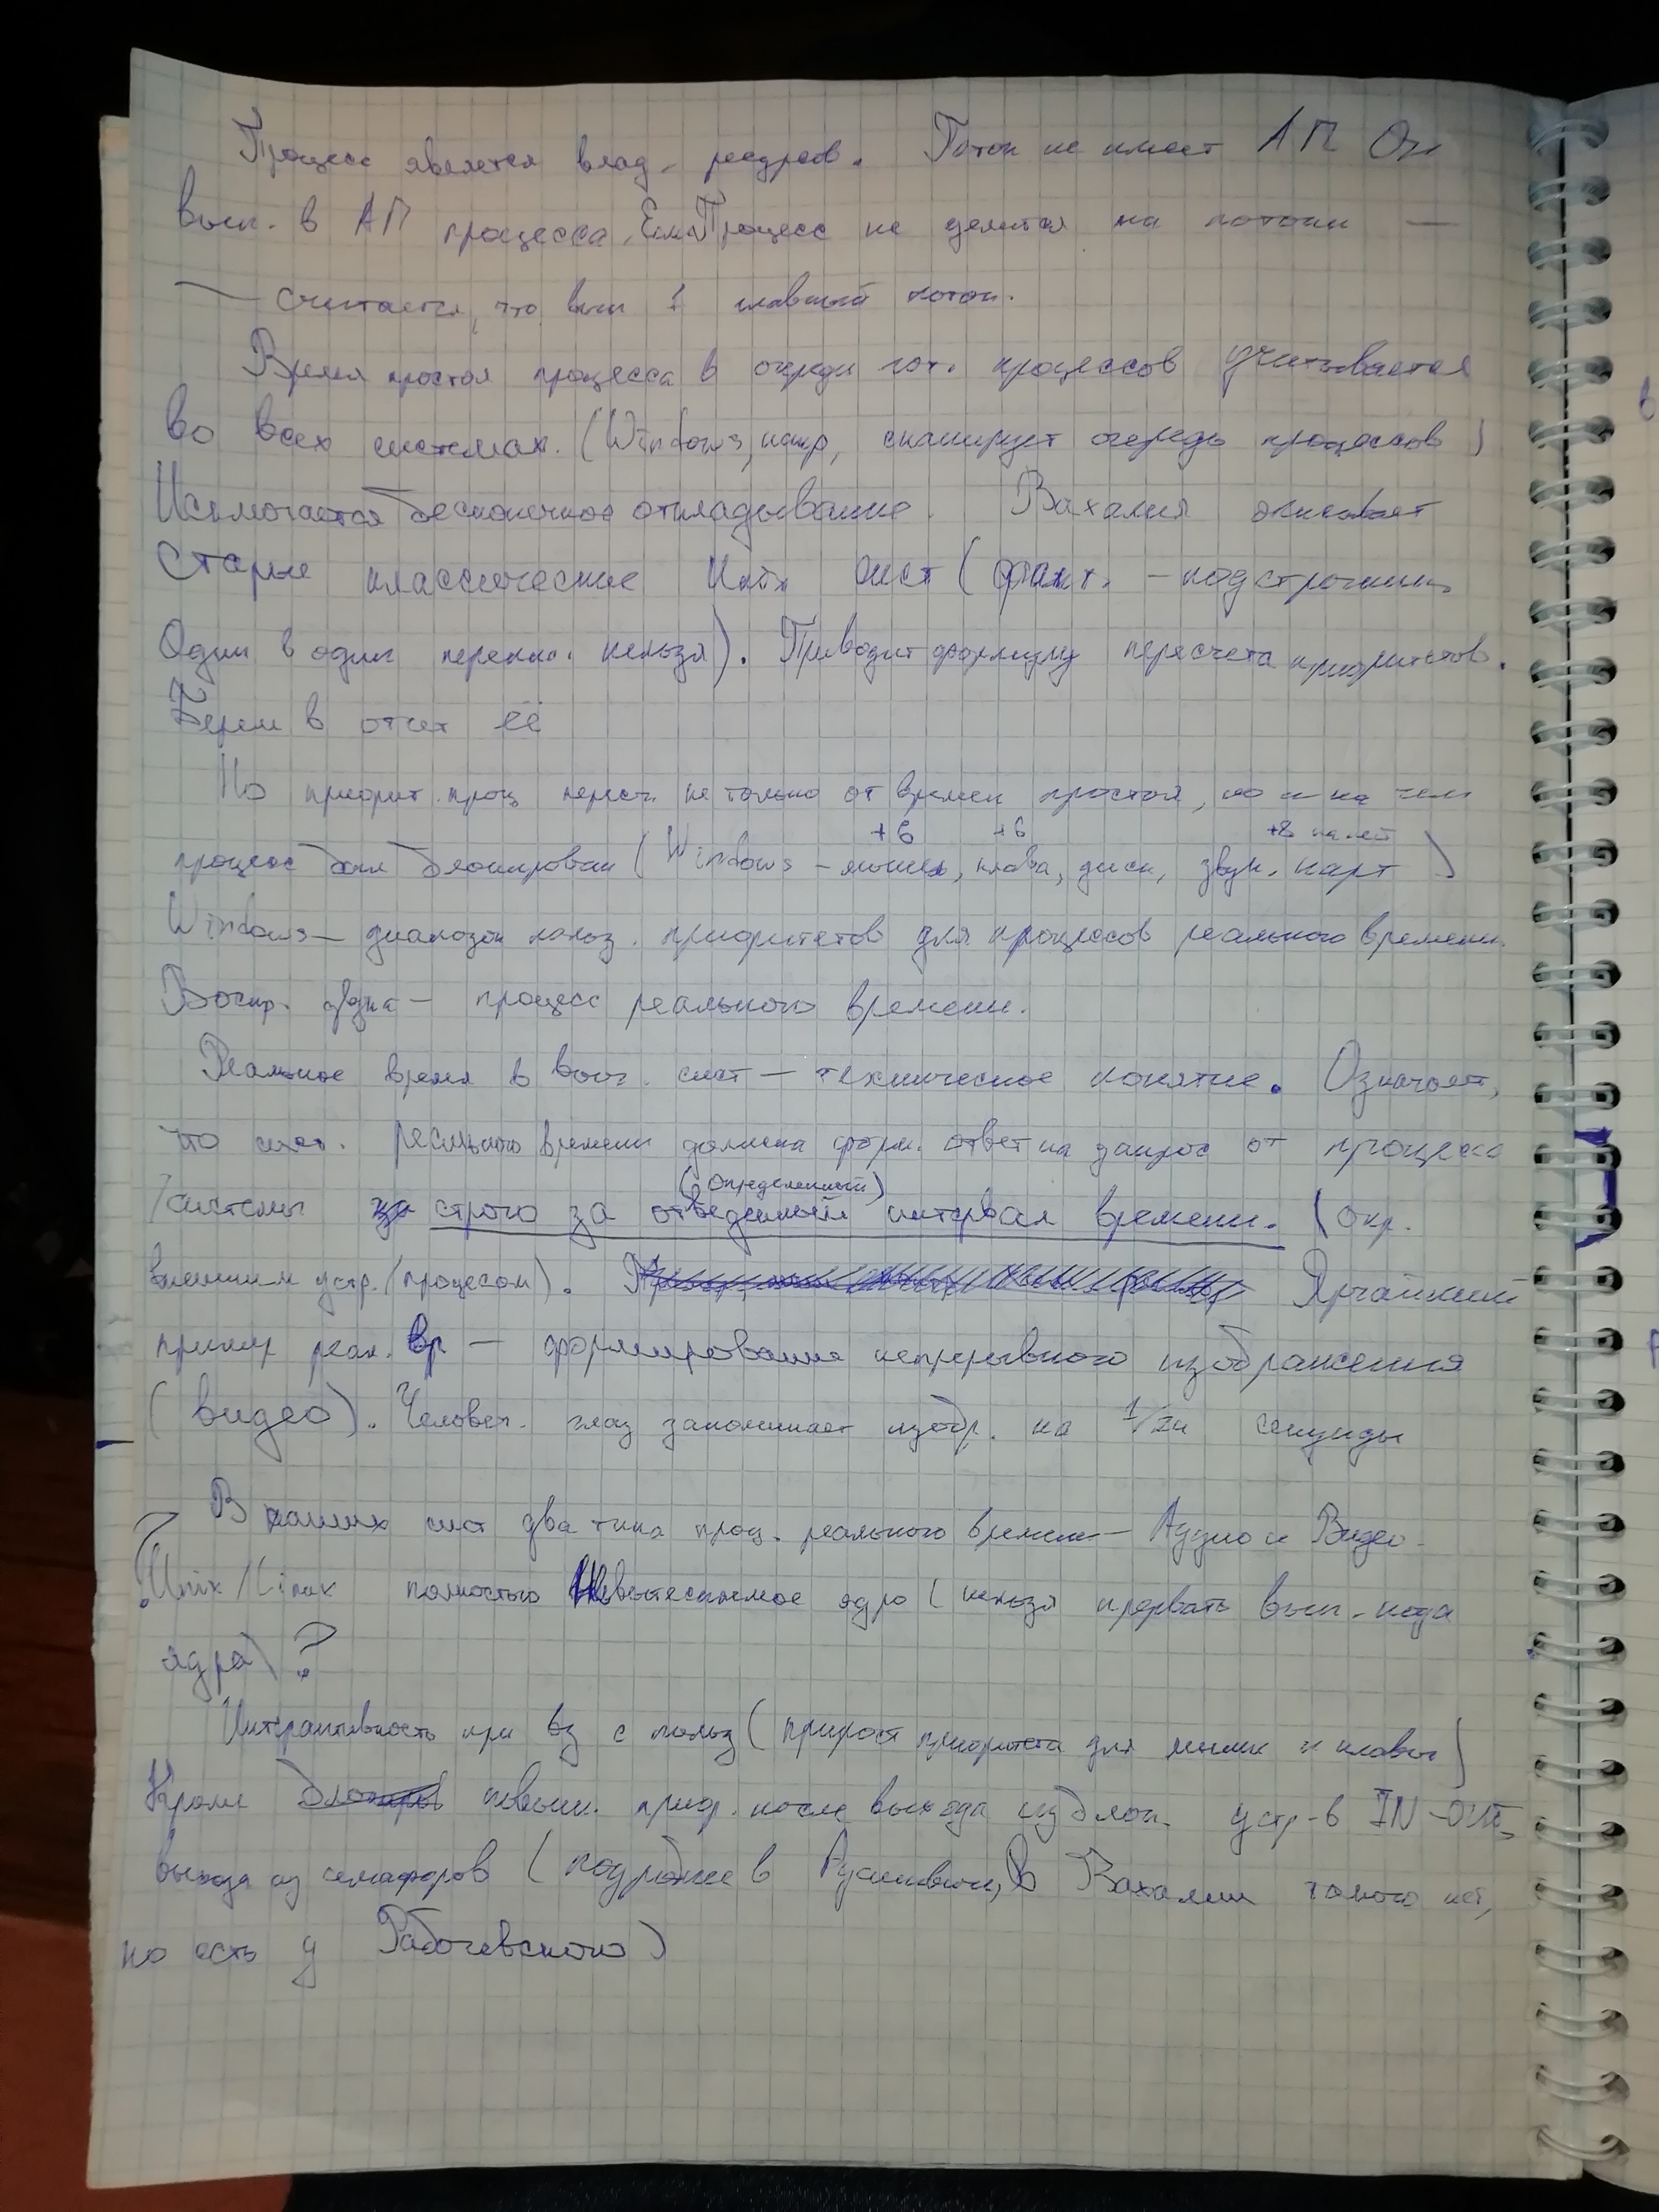 Процесс является влад. ресурсов. Поток не имеет АП Он
вып. в АП процесса. Если Процесс не делится на потоки —
— считается, что вып 1 главный поток.
Время простоя процесса в очереди гот. процессов учитывается
во всех системах. (Windows, напр, сканирует очередь процессов)
Исключается бесконечное откладывание. Вахалия описывает
Старые классические Юникс сист ( - подстрочник
Один в один перекл. нельзя). Приводит формулу пересчета приоритетов.
Берем в отчет её
Но приорит. проц пересч не только от времен простоя, но и на чем
+6 +6 +8 на ней
процесс был блокирован (Windows – мышь, клава, диск, звук. карт)
Windows — диапазон польз. приоритетов для процессов реального времени.
Воспр. звука — процесс реального времени.
Реальное время в выч. сист — техническое понятие. Означает,
что сист. реального времени должна форм. ответ на запрос от процесса
(определенный)
/системы строго за отведенный интервал времени. (Окр.
внешним устр. (процесом). Ярчайший
пример реал. вр — формирование непрерывного изображения
(видео). Человеч. глаз запоминает изобр. на 1/24 секунды
В наших сист два типа проц. реального времени — Аудио и Видео.
? Unix/Linux полностью Невытесняемое ядро (нельзя прервать вып. кода
ядра) ?
Интерактивность при вз с польз (прирост приоритета для мыши и клавы)
Кроме повыш. приор. после выхода из блок. устр-в IN-OUT,
выхода из семафоров (подробнее в Руссинович, В Вахалии такого нет,
но есть у Рабочевского)